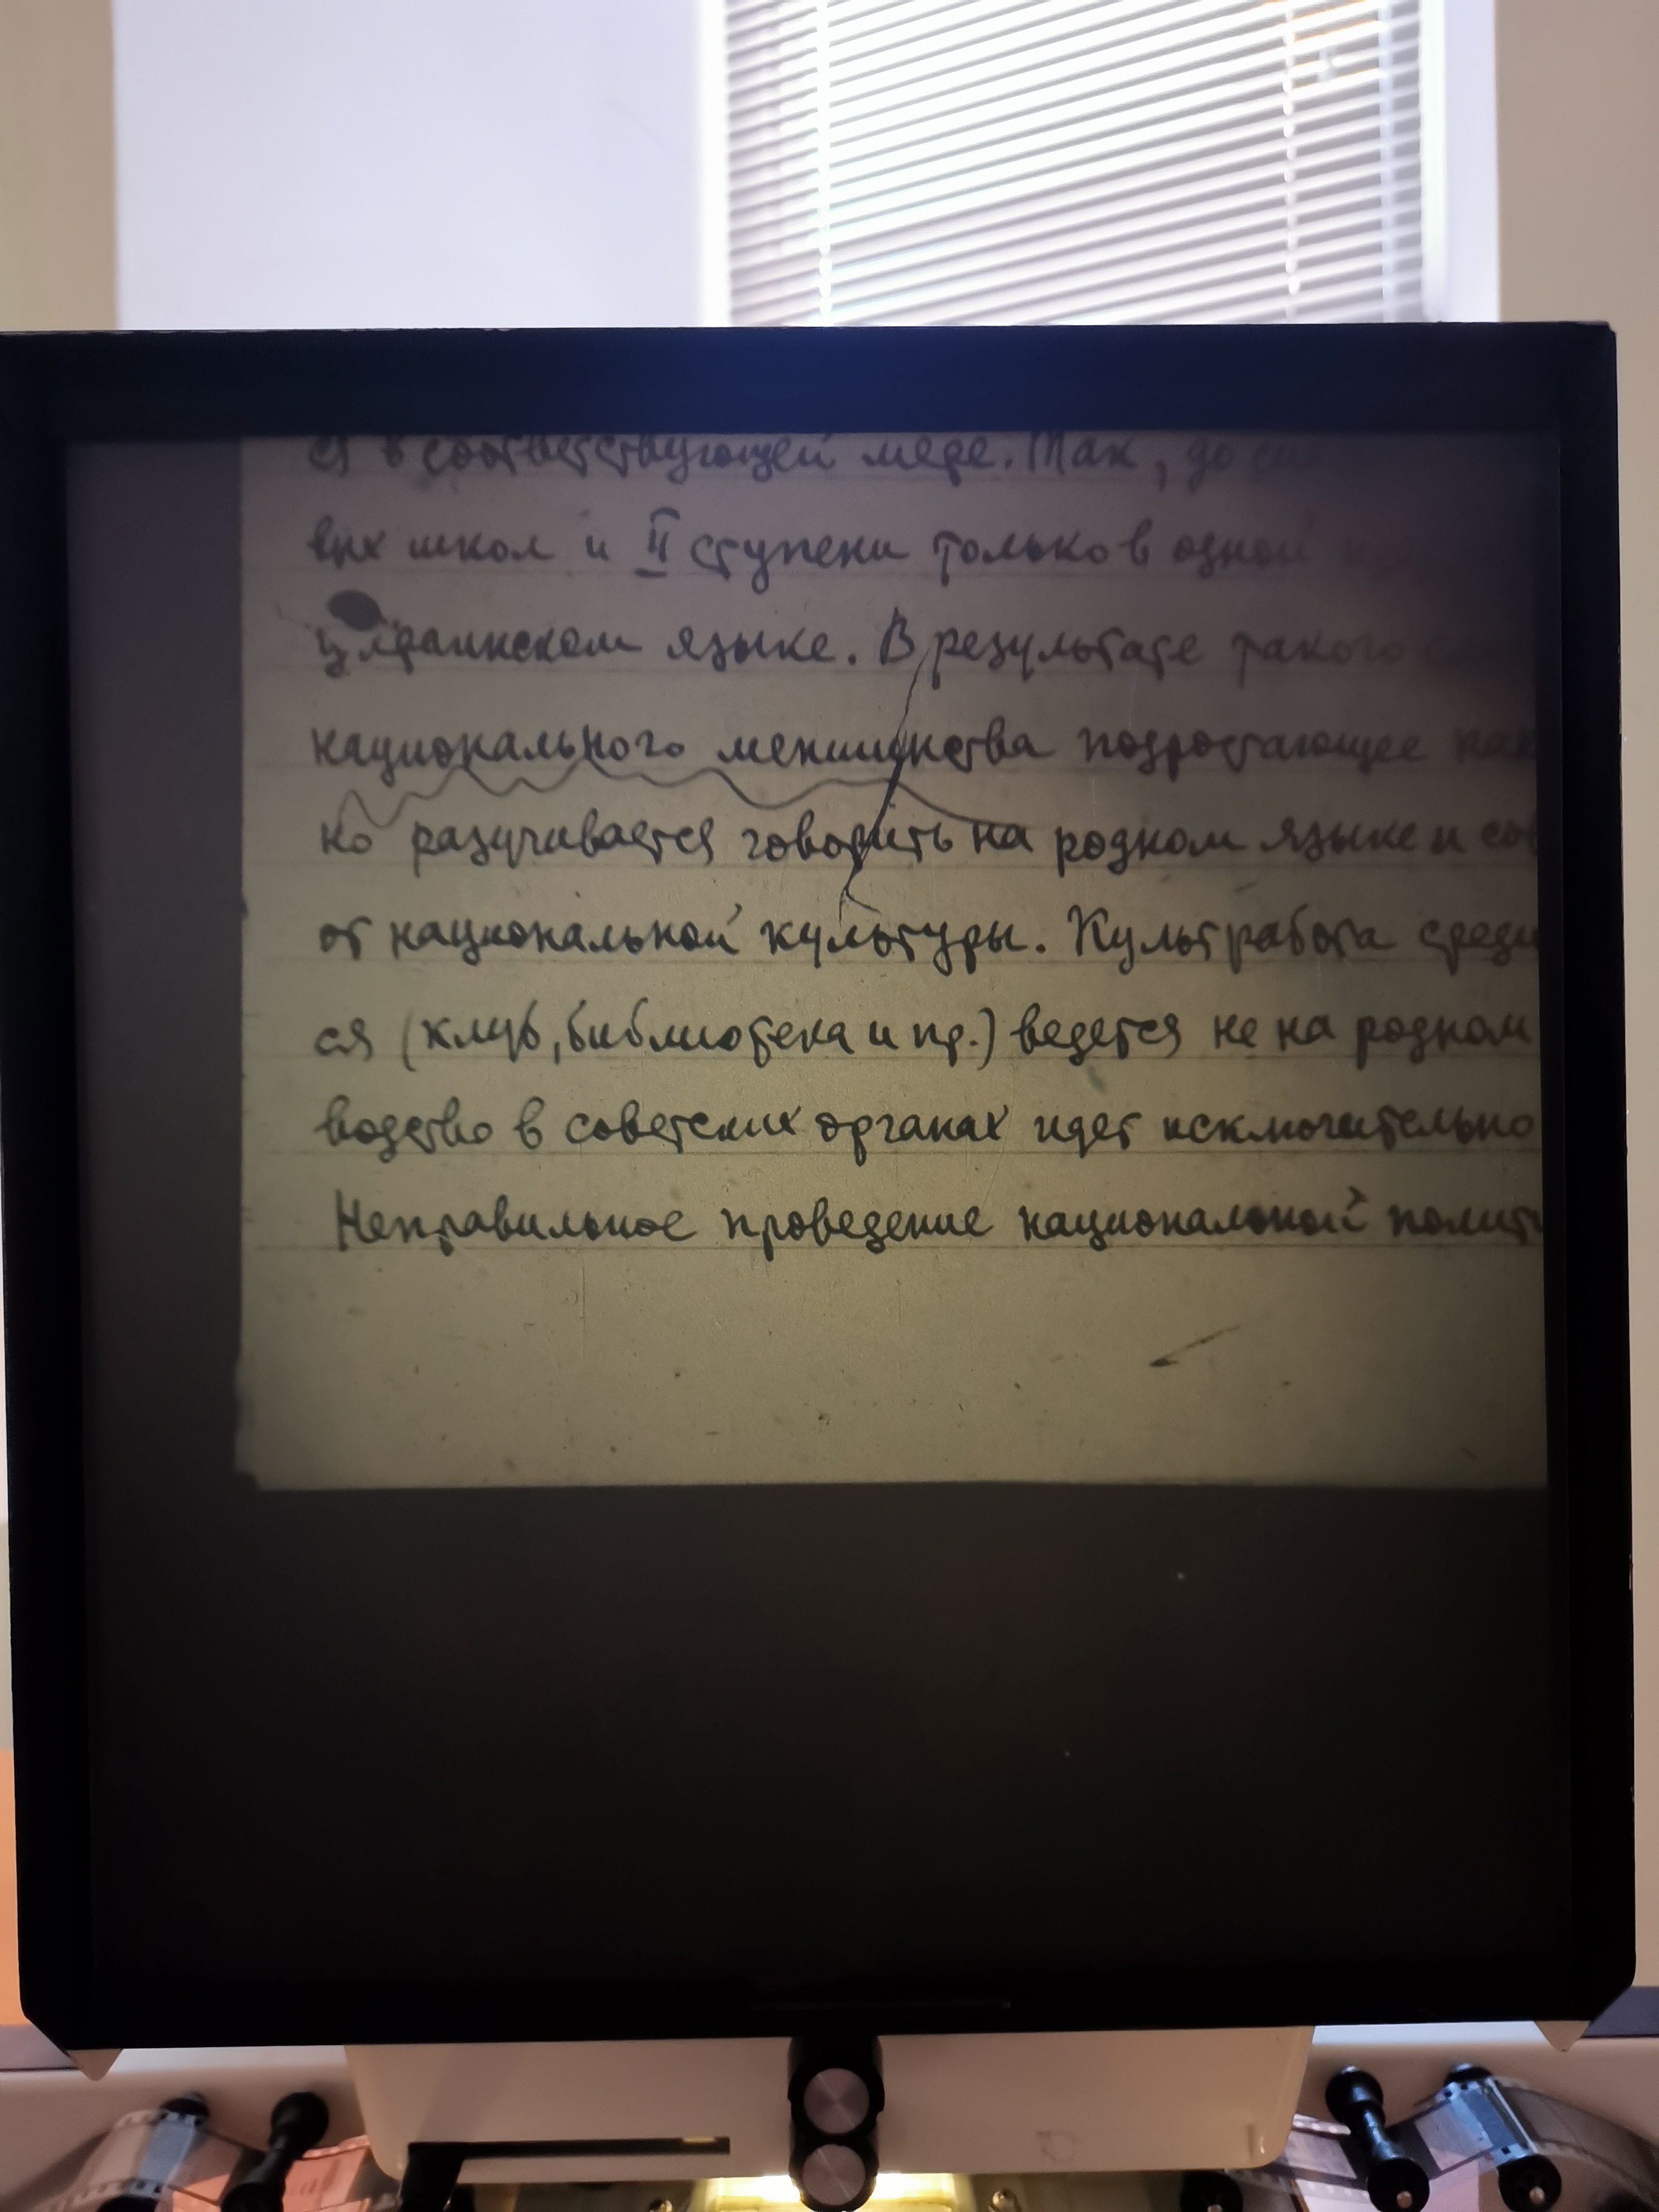 ся в соответствующей мере. Так, до сих
вых школ и II ступени только в одной
украинском языке. В результате такого
национального меншинства подростающее
но разучивается говорить на родном языке и сов
от национальной культуры. Культработа среди
ся (клуб, библиотека и пр.) ведется не на родном
водство в советских органах идет исключительно
Неправильное проведение национальной полити